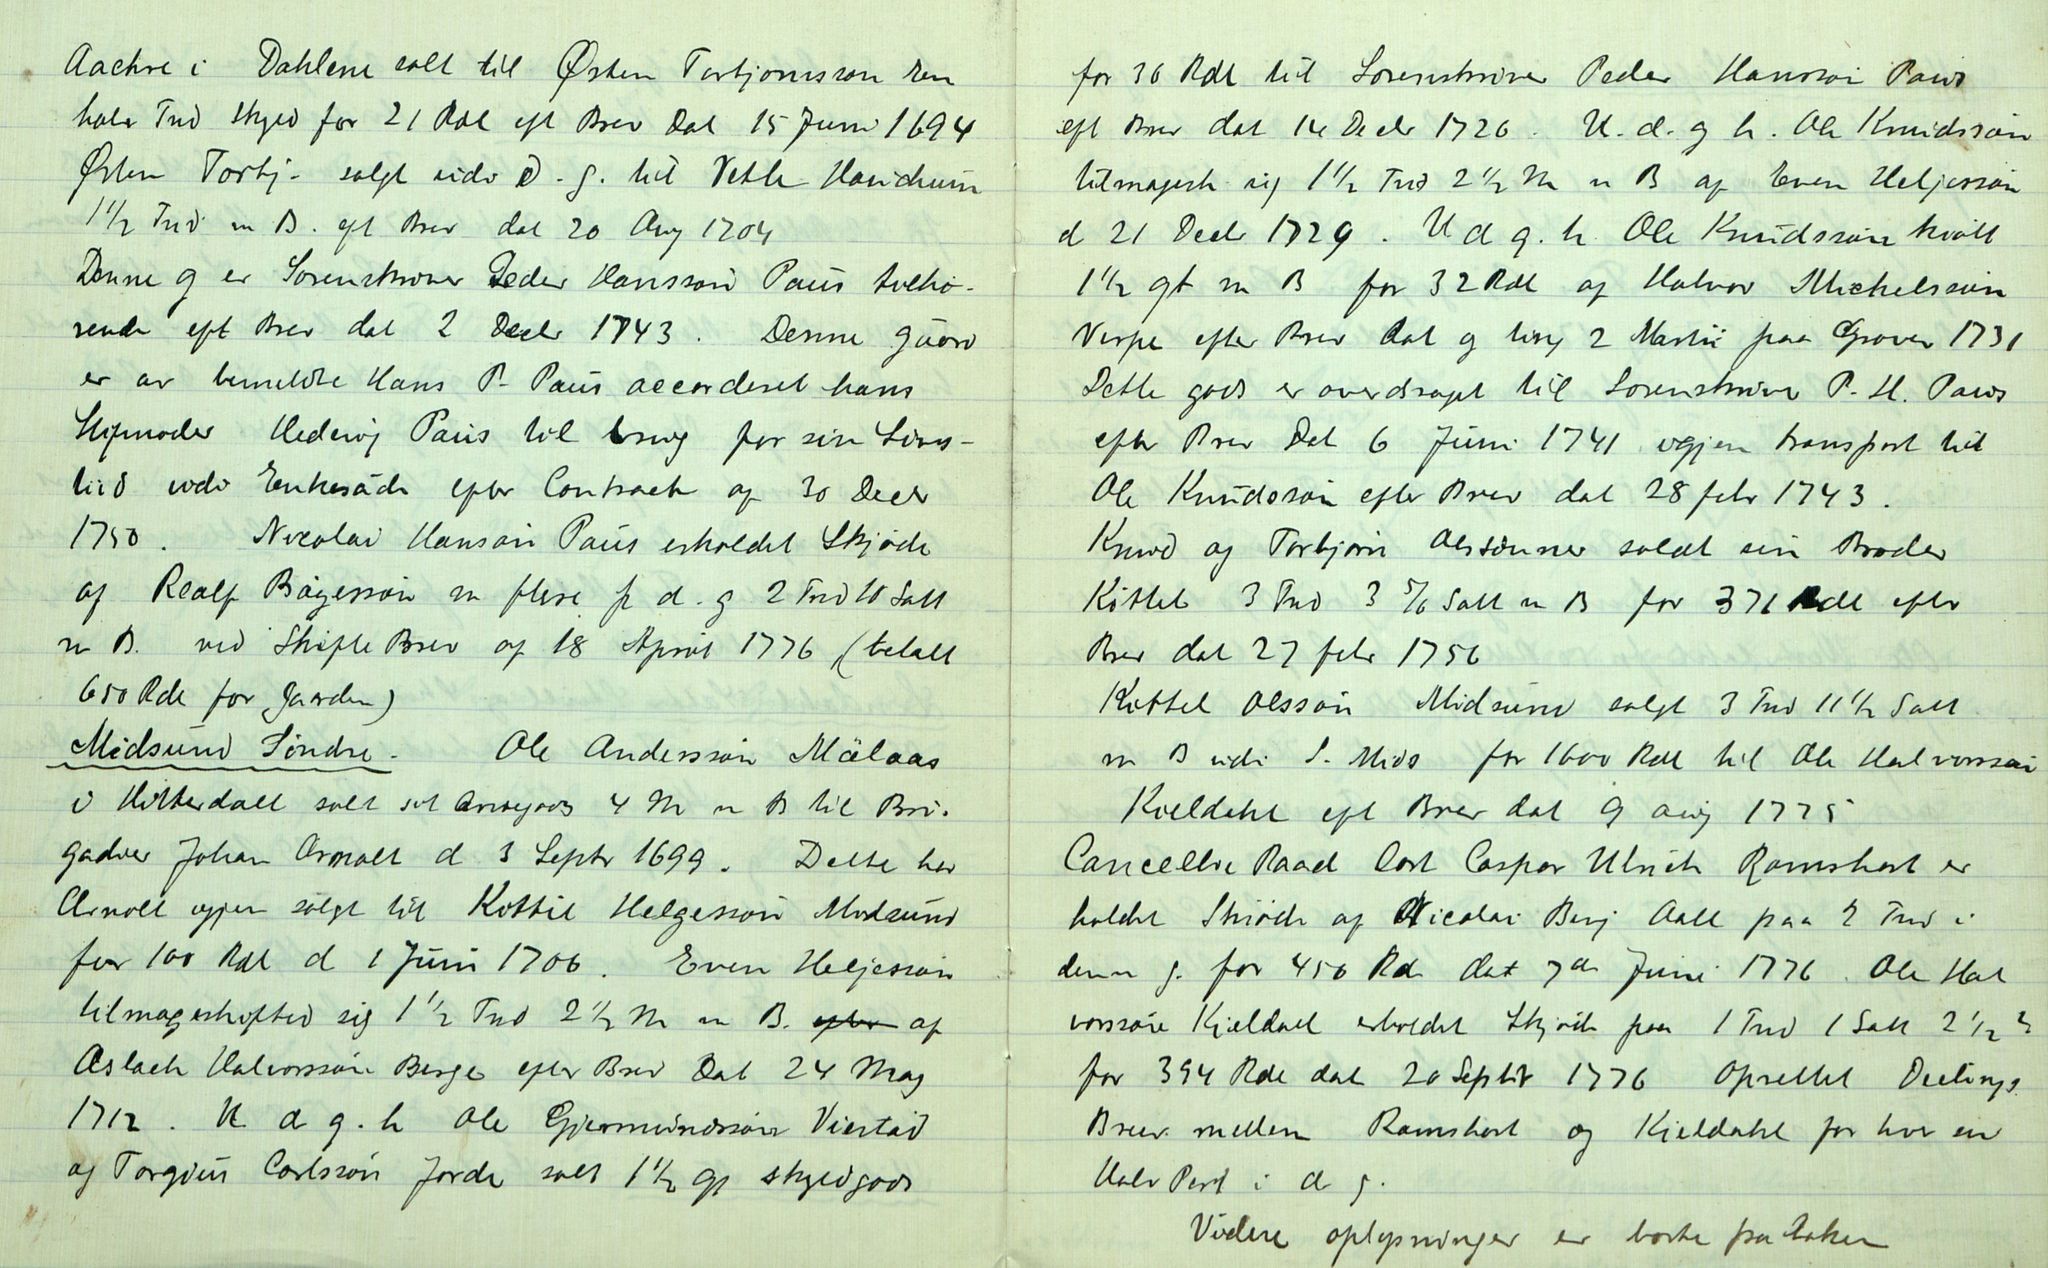 Aachre i Dahlene solt til Østen Torbjornsson een
halv Tnd skyld for 21 Rdl eft Brev Dat 15 Juni 1694
Østen Torbj- solgt udi d. g. til Vetle
1 1/2 Tnd m B. eft Brev dat 20 Aug 1704
Denne g er Sorenskriver Peder Hansson Paus tilhø-
rende eft Brev dat 2 Decbr 1743. Denne gaard
er av bemeldte Hans P- Paus accorderet hans
Stifmoder Hedevig Paus til brug for sin Livs-
tid udi Enkesæde efter Contract af 30 Decbr
1750. Nicolai Hanson Paus erholdet Skjøde
af Realf Bøgesson m flere p d. g 2 Tnd 10 Satt
m B. ved Skifte Brev af 18 April 1776 (betalt
650 Rdl for gaarden)
Midsund Søndre- Ole Andersson Mælaas
i Hitterdall solt sit arvegods 4 M m B til Bri-
gadier Johan Arnolt d 3 Septr 1699. Dette har
Arnolt igjen solgt til Kittil Helgesson Midsund
for 100 Rdl d 1 Juni 1706. Even Heljesson
tilmageskifted sig 1 1/2 Tnd 2 1/2 M m B. efter af
Aslach Halvorsson Berge efter Brev Dat 24 May
1712. U d g. h Ole Gjermundsson Viestad
og Torgius Carlsson Jorde solt 1 1/2 gs skyldgods
for 36 Rdl til Sorenskriver Peder Hansson Paus
eft Brev dat 14 Decbr 1726. U. d. g h. Ole Knudsson
tilmagesk sig 1 1/2 Tnd 2 1/2 M m B af Even Heljesson
d 21 Decbr 1729. U d g. h. Ole Knudsson
1 1/2 gt m B for 32 Rdl af Halvor Mickelsson
Verpe efter Brev dat g ting 2 Martii paa Graver 1731
Dette gods er overdraget til Sorenskriver P. H. Paus
efter Brev Dat 6 Juni 1741 igjen transport til
Ole Knudsson efter Brev dat 28 febr 1743.
Knud og Torbjørn Olssønner soldt sin Broder
Kittel 3 Tnd 3 5/6 Satt m B for 371 Rdl efter
Brev dat 27 febr 1756
Kittel Olsson Midsund solgt 3 Tnd 11 1/2 Satt
m B udi S. Mids for 1600 Rdl til Ole Halvorsson
Kieldahl eft Brev dat 9 aug 1775
Cancellie Raad Cort Caspar Ulrich Ramshart er
holdet Skiøde af Nicolai Benj Aall paa 2 Tnd i
denne g. for 450 Rd dat 7de Juni 1776. Ole Hal
vorssøn Kieldall erholdet Skjøde paa 1 Tnd 1 Satt 2 1/2
for 394 Rdl dat 20 Septbr 1776 Oprettet Deelings
Brev mellem Ramshart og Kieldahl for hver en
Halv Part i d g.
Videre oplysninger er borte fra boken